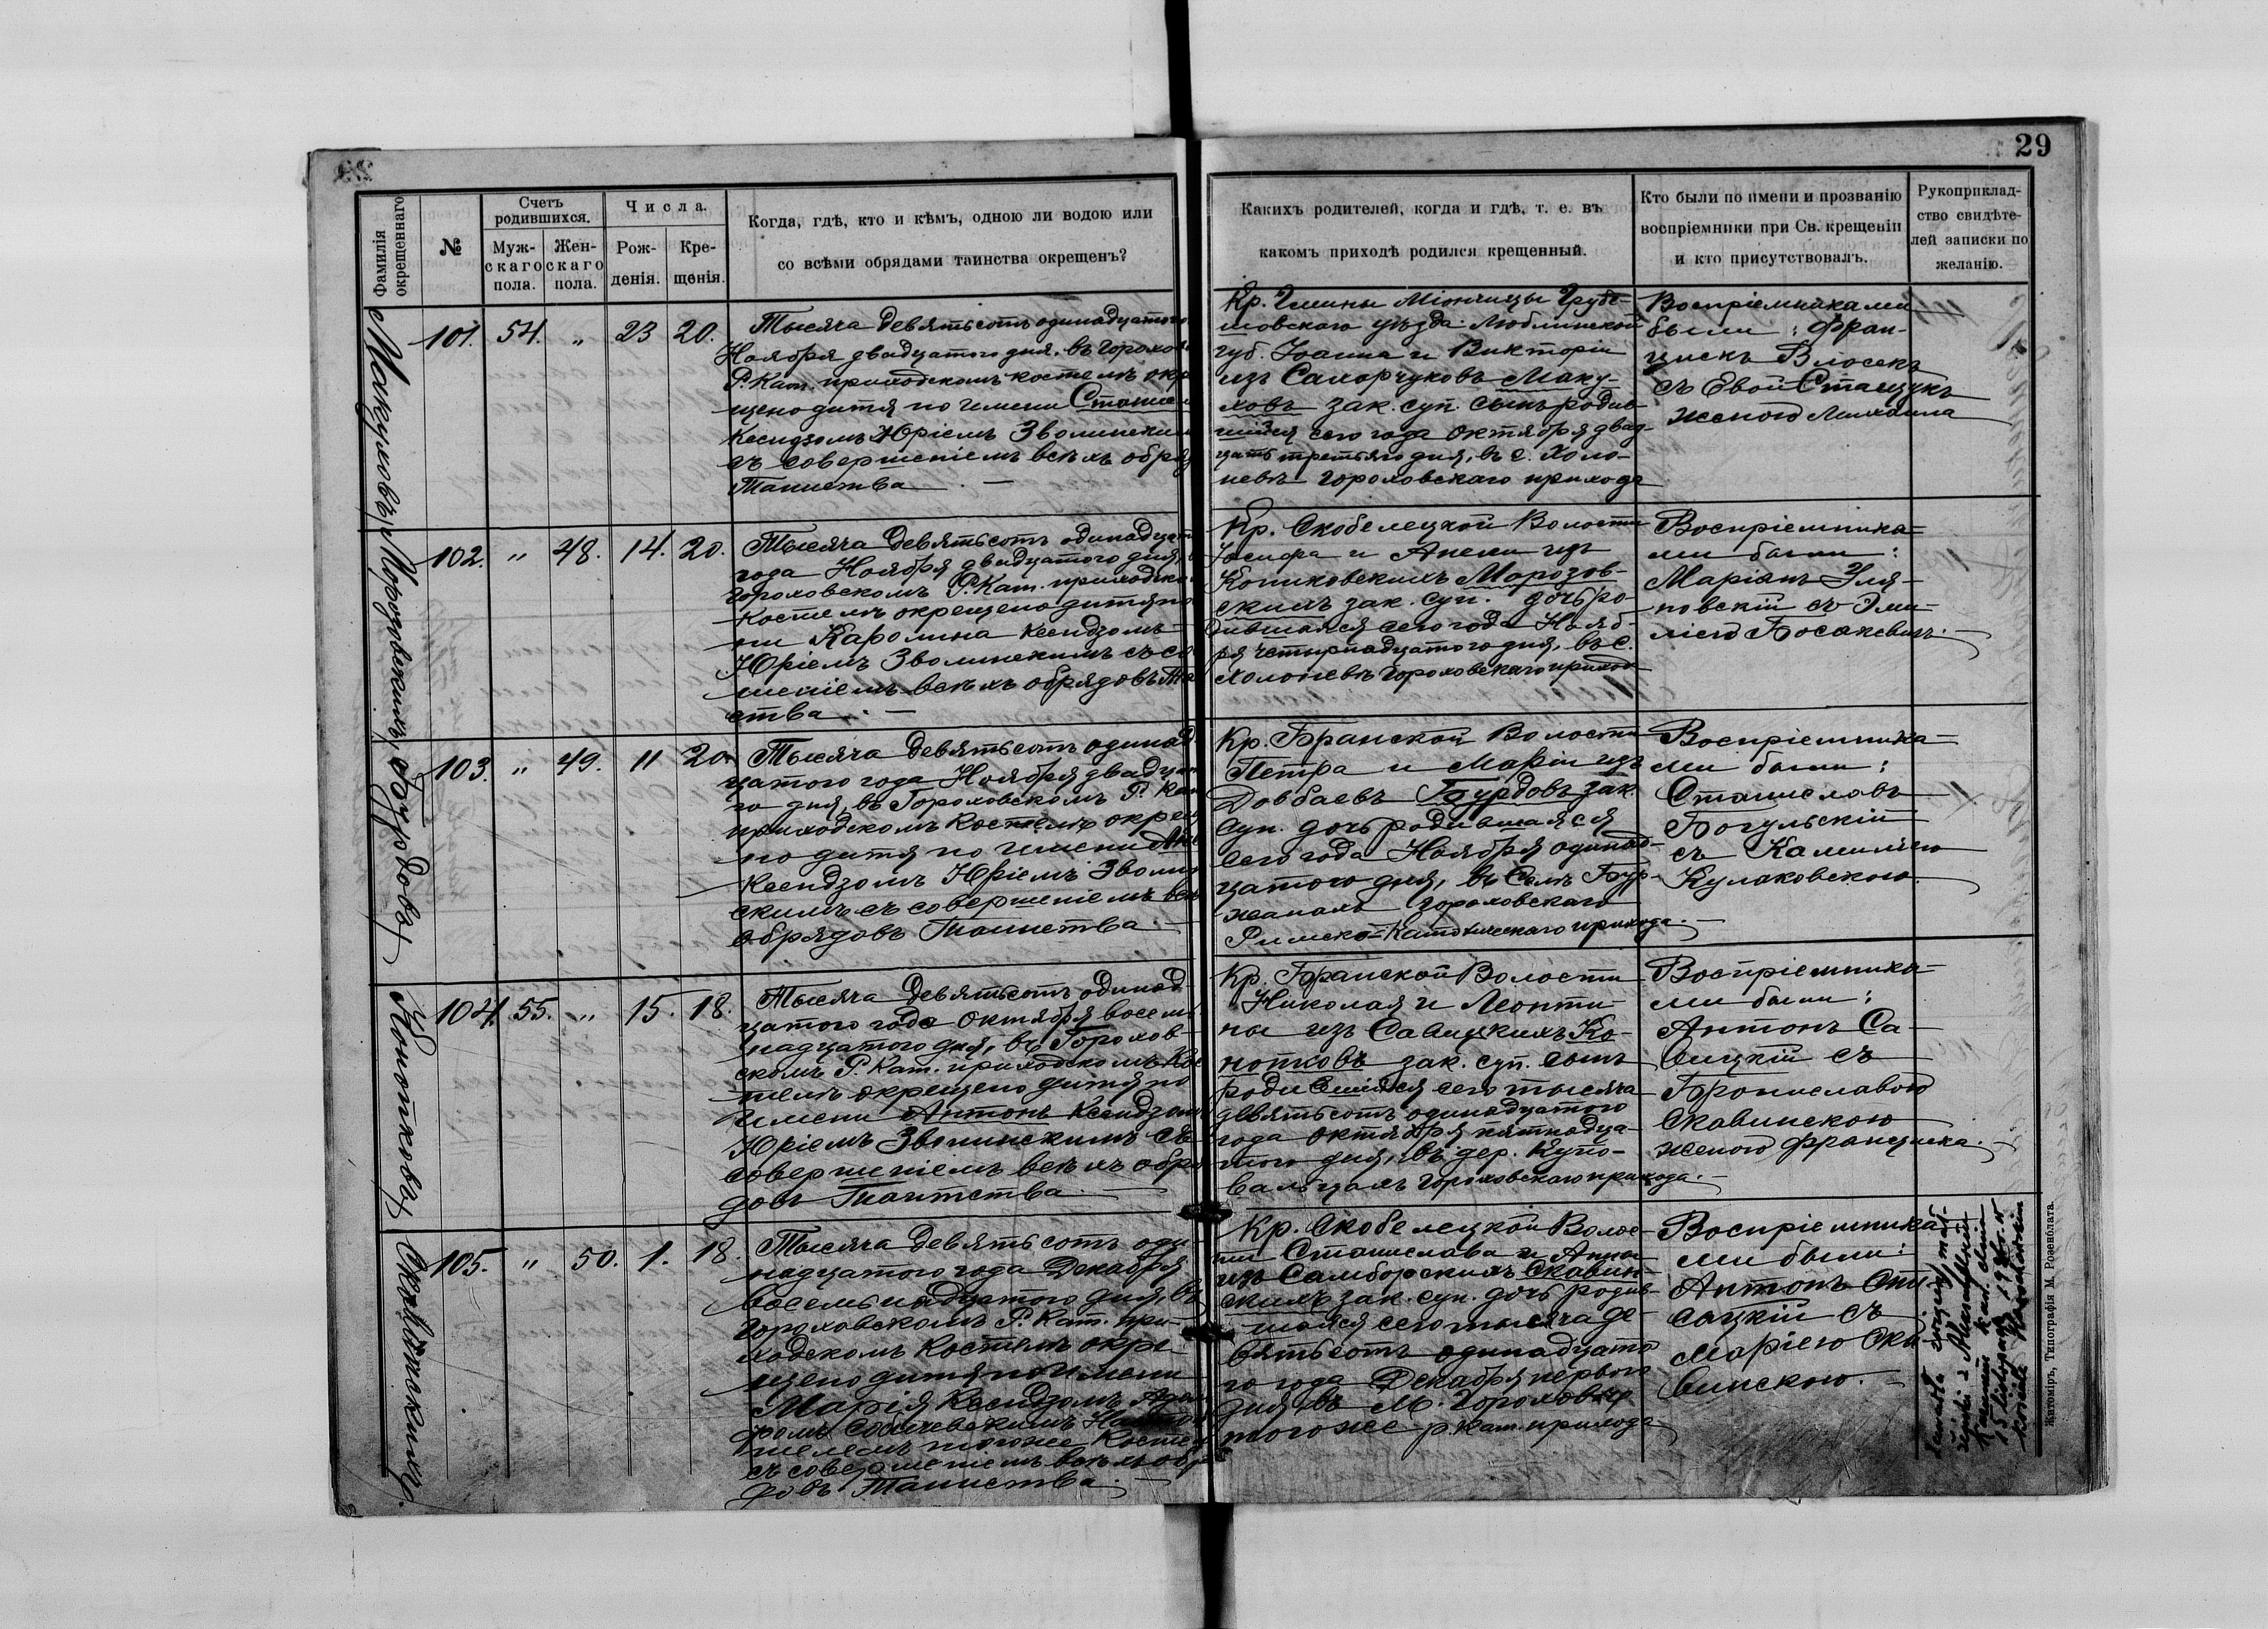 29
Фамилія окрещеннаго
№
Счетъ родившихся.
Муж-
скаго
пола.
Жен-
скаго
пола.
Числа.
Рож-
денія.
Кре-
щенія.
Когда, гдѣ, кто и кѣмъ, одною ли водою или
со всѣми обрядами таинства окрещенъ?
Какихъ родителей, когда и гдѣ, т. е. въ
какомъ приходѣ родился крещенный.
Кто были по имени и прозванію
воспріемники при Св. крещеніи
и кто присутствовалъ.
Рукоприклад-
ство свидѣте-
лей записки по
желанію.
101. 54. " 23 20.
Тысяча девятьсотъ одинадцатого
Ноября двадцатого дня, въ
Р. Кат. приходскомъ костелѣ
щено дитя по имени
Ксендзомъ Юріемъ
съ совершеніемъ всѣхъ
Таинства
Кр. Гмины Міончицы Грубе-
шовскаго уѣзда Люблинской
губ. Іоанна и Викторіи
изъ Саморчуковъ Маку-
ховъ зак. суп. сынъ родив-
шійся сего года Октября двад-
цать третьяго дня, въ с. Холо-
невѣ Гороховскаго прихода
Воспріемниками
были: Фран-
цискъ Влосекъ
съ Евой Стащукъ
женою Михаила
Морозовскихъ
102. " 48. 14. 20.
Тысяча девятьсотъ
года Ноября двадцатого дня,
Гороховскомъ Р. Кат.
костелѣ окрещено дитя по
ни Каролина Ксендзомъ
Юріемъ Зволинскимъ съ со
шеніемъ всѣхъ обрядовъ Та
ства.
Кр. Скобелецкой Волости
Іосифа и Анели изъ
Копиковскихъ Морозов-
скихъ зак. суп. дочь ро-
дившаяся сего года Нояб-
ря четырнадцатого дня, въ с.
Холоневѣ Гороховскаго
Воспріемника-
ми были:
Маріянъ Уля-
новскій съ Эми-
ліею Босакевичъ.
Бурдовъ
103. " 49. 11 20.
Тысяча девятьсотъ одинад
цатого года Ноября
го дня, въ Гороховскомъ Р. Кат
приходскомъ костелѣ окрещ
но дитя по имени
Ксендзомъ Юріемъ Зволин
скимъ съ совершеніемъ всѣ
обрядовъ Таинства.
Кр. Бранской Волости
Петра и Маріи изъ
Довбаевъ Бурдовъ зак.
суп. дочь родившаяся
сего года Ноября одинад-
цатого дня, въ селѣ Бур-
жанахъ Гороховскаго
Римско-Католическаго прихода.
Воспріемника-
ми были:
Станиславъ
Богульскій
съ Камиліею
Кулаковскою.
Конопковъ
104. 55. " 15. 18.
Тысяча девятьсотъ одинад
цатого года Октября восем
надцатого дня, въ Горохов
скомъ Р. Кат. приходскомъ Кос
телѣ окрещено дитя по
имени Антонъ Ксендзомъ
Юріемъ Зволинскимъ съ
совершеніемъ всѣхъ обря
довъ Таинства.
Кр. Бранской Волости
Николая и Леонти-
ны изъ Савицкихъ Ко-
нопковъ зак. суп. сынъ
родившійся сего тысяча
девятьсотъ одинадцатого
года Октября пятнадца-
того дня, въ дер. Купо-
вальцахъ Гороховскаго прихода.
Воспріемника-
ми были:
Антонъ Са-
вицкій съ
Брониславою
Скавинскою
женою Франциска.
105. " 50. 1. 18.
Тысяча девятьсотъ оди-
надцатого года Декабря
восемьнадцатого дня, въ
Гороховскомъ Р. Кат. при-
ходскомъ костелѣ окре-
щено дитя по имени
Марія Ксендзомъ
телемъ тогоже Костела
съ совершеніемъ всѣхъ обр
довъ Таинства.
Кр. Скобелецкой Волос-
ти Станислава и Анны
изъ Самборскихъ Скавин-
скихъ зак. суп. дочь родив-
шаяся сего тысяча де-
вятьсотъ одинадцато
го года Декабря первого
дня въ М. Гороховѣ
тогоже р. кат. прихода
Воспріемника-
ми были:
Антонъ
съ
Маріею Ска
винскою.
Житоміръ, Типографія М. Розенблата.